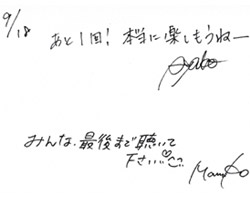 9/18
あと1回! 本当に楽しもうねー
みんな、最後まで聴いて
下さい…♡
Mamiko